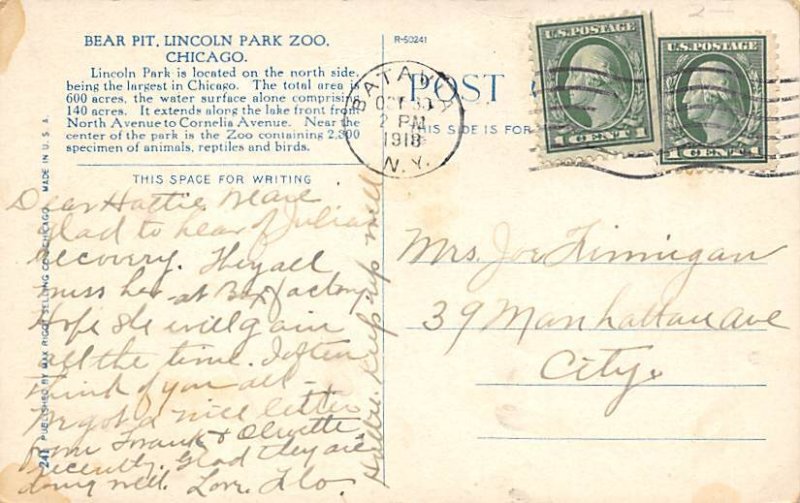 BEAR PIT, LINCOLN PARK ZOO,
CHICAGO.
Lincoln Park is located on the north side,
being the largest in Chicago. The total area is
600 acres, the water surface alone comprising
140 acres. It extends along the lake front from
North Avenue to Cornelia Avenue. Near the
center of the park is the Zoo containing 2,300
specimen of animals, reptiles and birds.
THIS SPACE FOR WRITING
Dear Hattie
Glad to hear of Julias
recovery. They all
miss her at Box factory.
Hope she will gain
all the time. I often
think of you all -
We got a nice letter
from Frank & Olivette
recently. Glad they are
doing well. Love. Flo.
Hattie. Keep up well
241 PUBLISHED BY MAX RIGOT SELLING CO. CHICAGO. MADE IN U.S.A.
R-50241
POST
THIS SIDE IS FOR
BATAVIA
OCT
2 PM
1918
N.Y.
U.S. POSTAGE
1 CENT 1
U.S. POSTAGE
1 CENT 1
Mrs. Joe Finnigan
39 Manhattan ave
City.